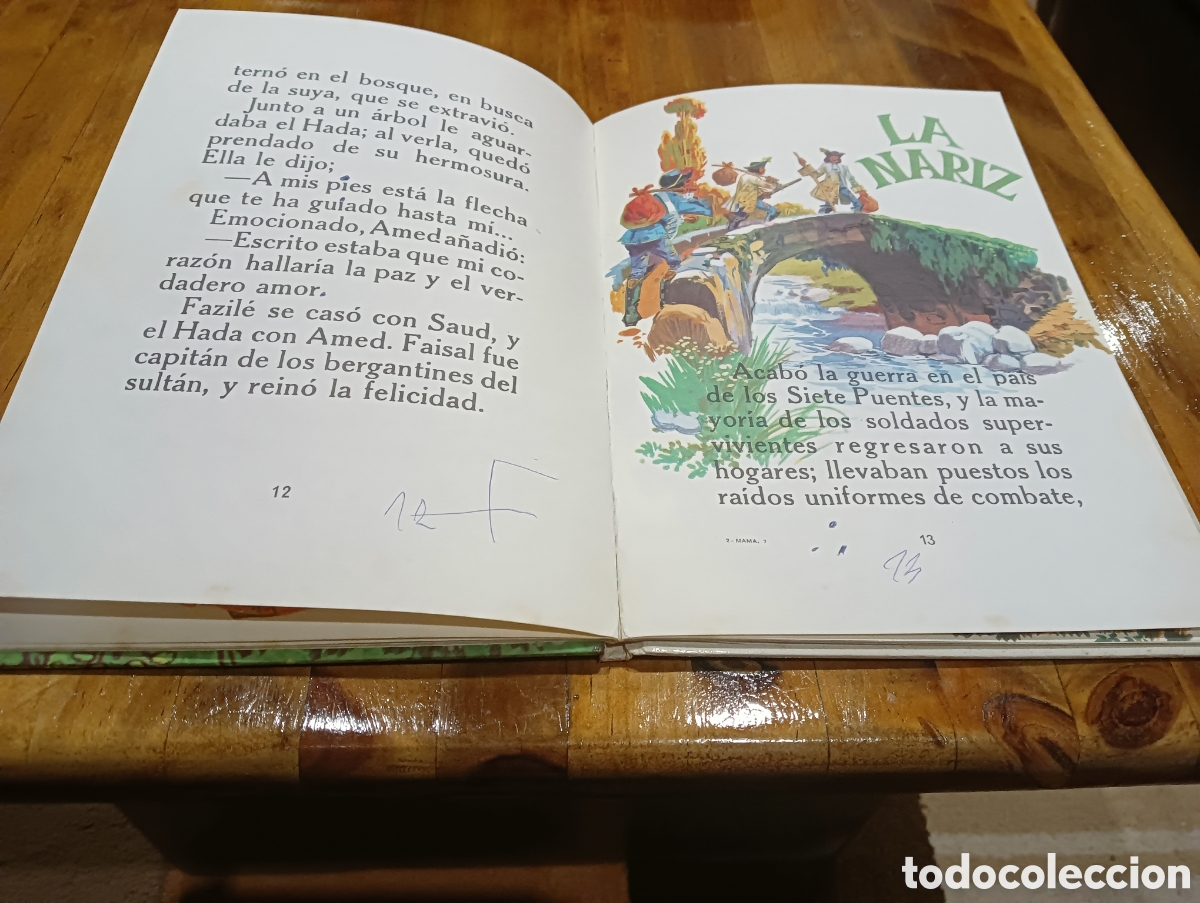 ternó en el bosque, en busca
de la suya, que se extravió.
Junto a un árbol le aguar-
daba el Hada; al verla, quedó
prendado de su hermosura.
Ella le dijo;
—A mis pies está la flecha
que te ha guiado hasta mí...
Emocionado, Amed añadió:
—Escrito estaba que mi co-
razón hallaría la paz y el ver-
dadero amor.
Fazilé se casó con Saud, y
el Hada con Amed. Faisal fue
capitán de los bergantines del
sultán, y reinó la felicidad.
12
12
LA
NARIZ
Acabó la guerra en el país
de los Siete Puentes, y la ma-
yoría de los soldados super-
vivientes regresaron a sus
hogares; llevaban puestos los
raídos uniformes de combate,
2 - MAMA. 7
13
13
todocoleccion